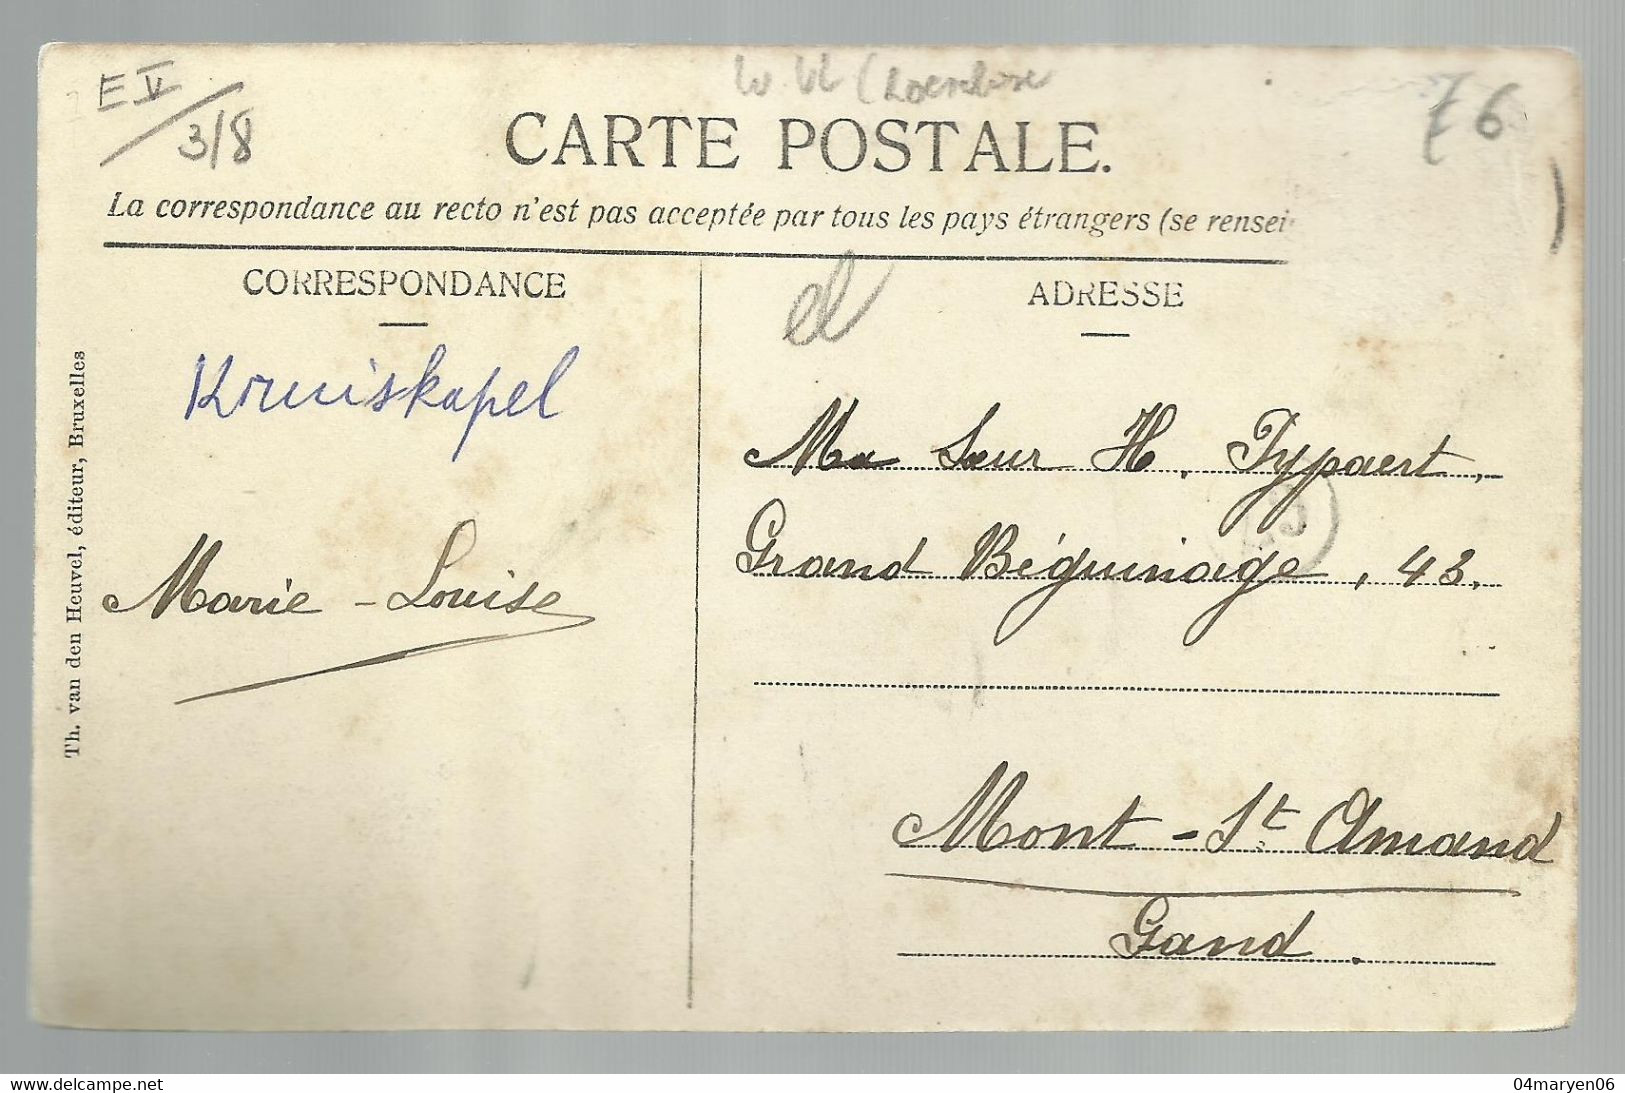 E V
3/8
76
CARTE POSTALE.
La correspondance au recto n'est pas acceptée par tous les pays étrangers (se rensei
CORRESPONDANCE
ADRESSE
Kruiskapel
Marie-Louise
Th. van den Heuvel, éditeur, Bruxelles
Ma Sœur H. Typaert,
Grand Béguinage, 43.
Mont-St. Amand
Gand.
www.delcampe.net
04maryen06